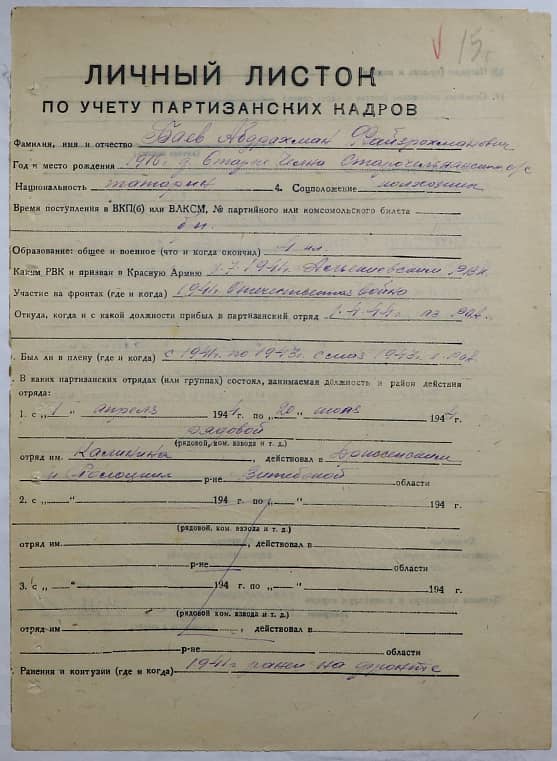 15
ЛИЧНЫЙ ЛИСТОК
ПО УЧЕТУ ПАРТИЗАНСКИХ КАДРОВ
Фамилия, имя и отчество Баев Абдрахман Файзрахманович
Год и место рождения 1910 д. Старое
Национальность татарин 4. Соцположение колхозник
Время поступления в ВКП(б) или ВЛКСМ, № партийного или комсомольского билета
б/п
Образование: общее и военное (что и когда окончил) 4 кл.
Каким РВК и призван в Красную Армию 1941г. РВК
Участие на фронтах (где и когда) 1941 Отечественная война
Откуда, когда и с какой должности прибыл в партизанский отряд 1.4.44г. из
Был ли в плену (где и когда) с 1941 по 1943г. 1943
В каких партизанских отрядах (или группах) состоял, занимаемая должность и район действия
отряда:
1. с „1“ апреля 1944 г. по „20“ июня 1944 г.
рядовой
(рядовой, ком. взвода и т. д.)
отряд им. Калинина, действовал в
и р-не Витебской области
2. с „ “ 194 г. по „ “ 194 г.
(рядовой, ком. взвода и т. д.)
отряд им. , действовал в
р-не области
3. с „ “ 194 г. по „ “ 194 г.
(рядовой, ком. взвода и т. д.)
отряд им , действовал в
р-не области
Ранения и контузии (где и когда) 1941г ранен на фронте